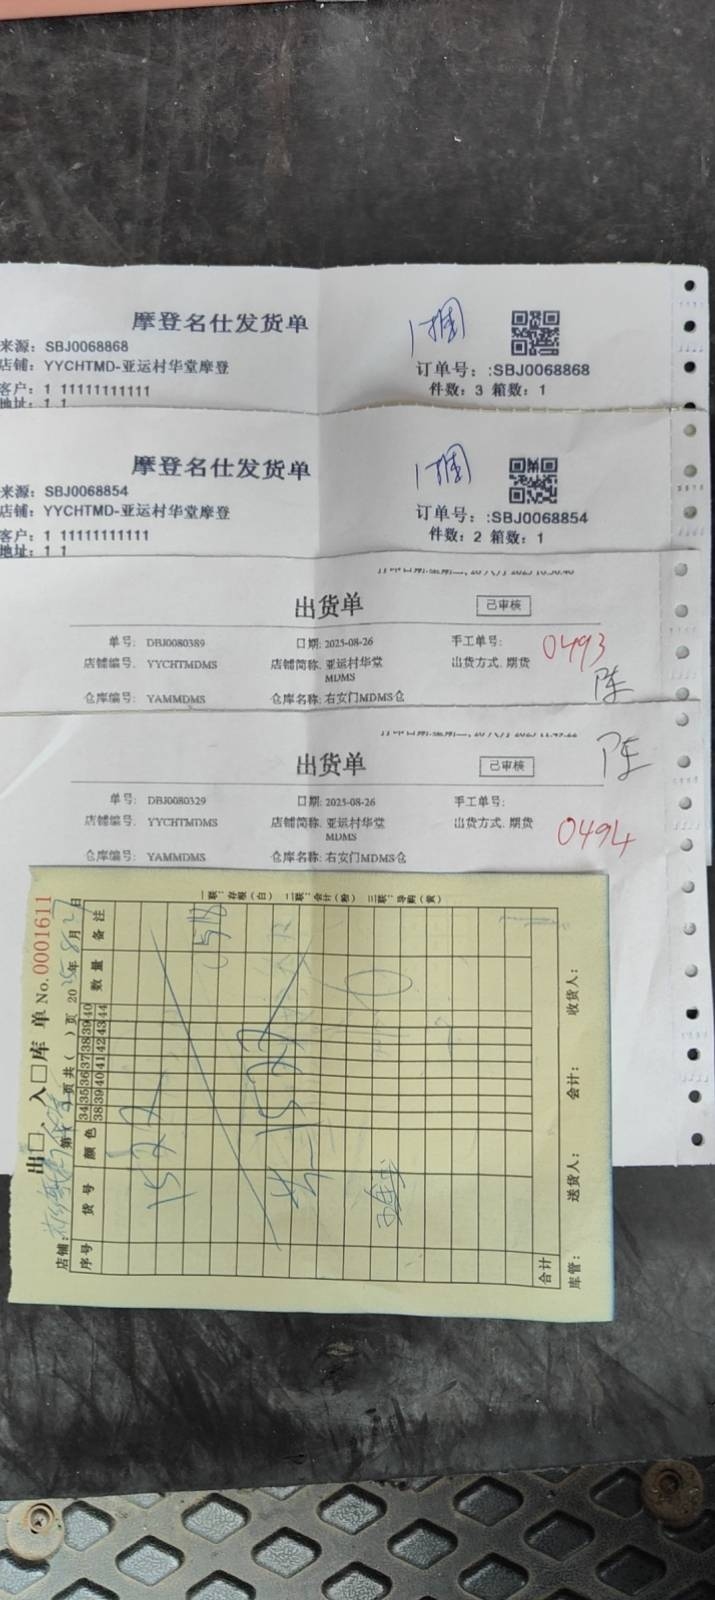 摩登名仕发货单
1捆
来源：SBJ0068868
店铺：YYCHTMD-亚运村华堂摩登
订单号：:SBJ0068868
客户：1 11111111111
件数：3 箱数：1
地址：1 1
摩登名仕发货单
1捆
来源：SBJ0068854
店铺：YYCHTMD-亚运村华堂摩登
订单号：:SBJ0068854
客户：1 11111111111
件数：2 箱数：1
地址：1 1
出货单
已审核
单号: DBJ0080389
日期: 2025-08-26
手工单号:
0493
店铺编号: YYCHTMDMS
店铺简称: 亚运村华堂MDMS
出货方式: 期货
陈
仓库编号: YAMMDMS
仓库名称: 右安门MDMS仓
出货单
已审核
陈
单号: DBJ0080329
日期: 2025-08-26
手工单号:
店铺编号: YYCHTMDMS
店铺简称: 亚运村华堂MDMS
出货方式: 期货
0494
仓库编号: YAMMDMS
仓库名称: 右安门MDMS仓
出□、入□库 单 No.0001611
店铺:
第 页共( )页 2025年8月27日
序号 货号 颜色 34 35 36 37 38 39 40 数量 备注
38 39 40 41 42 43 44
合计
库管： 送货人： 会计： 收货人：
一联：存根（白） 二联：会计（粉） 三联：导购（黄）